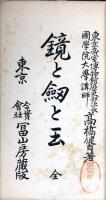 東京帝室博物館
國學院大學講師
高橋健自著
鏡と劔と玉 全
東京
合資
會社
冨山房藏版